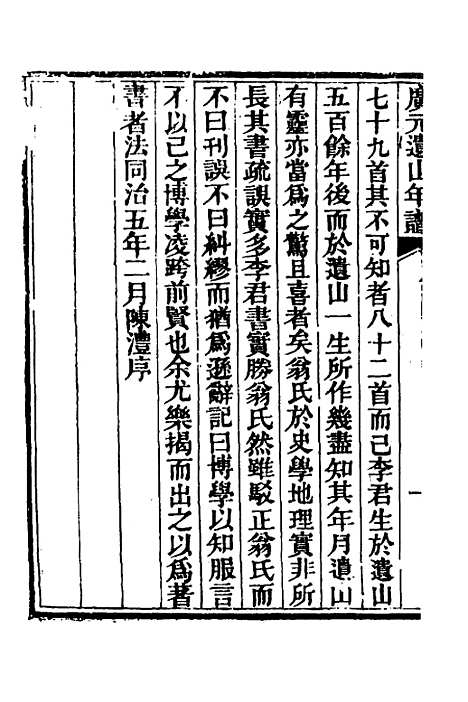 廣元遺山年譜
七十九首其不可知者八十二首而已李君生於遺山
五百餘年後而於遺山一生所作幾盡知其年月遺山
有靈亦當爲之驚且喜者矣翁氏於史學地理實非所
長其書疏誤實多李君書實勝翁氏然雖駁正翁氏而
不曰刊誤不曰糾繆而猶爲遜辭記曰博學以知服言
不以己之博學凌跨前賢也余尤樂揭而出之以爲著
書者法同治五年二月陳澧序